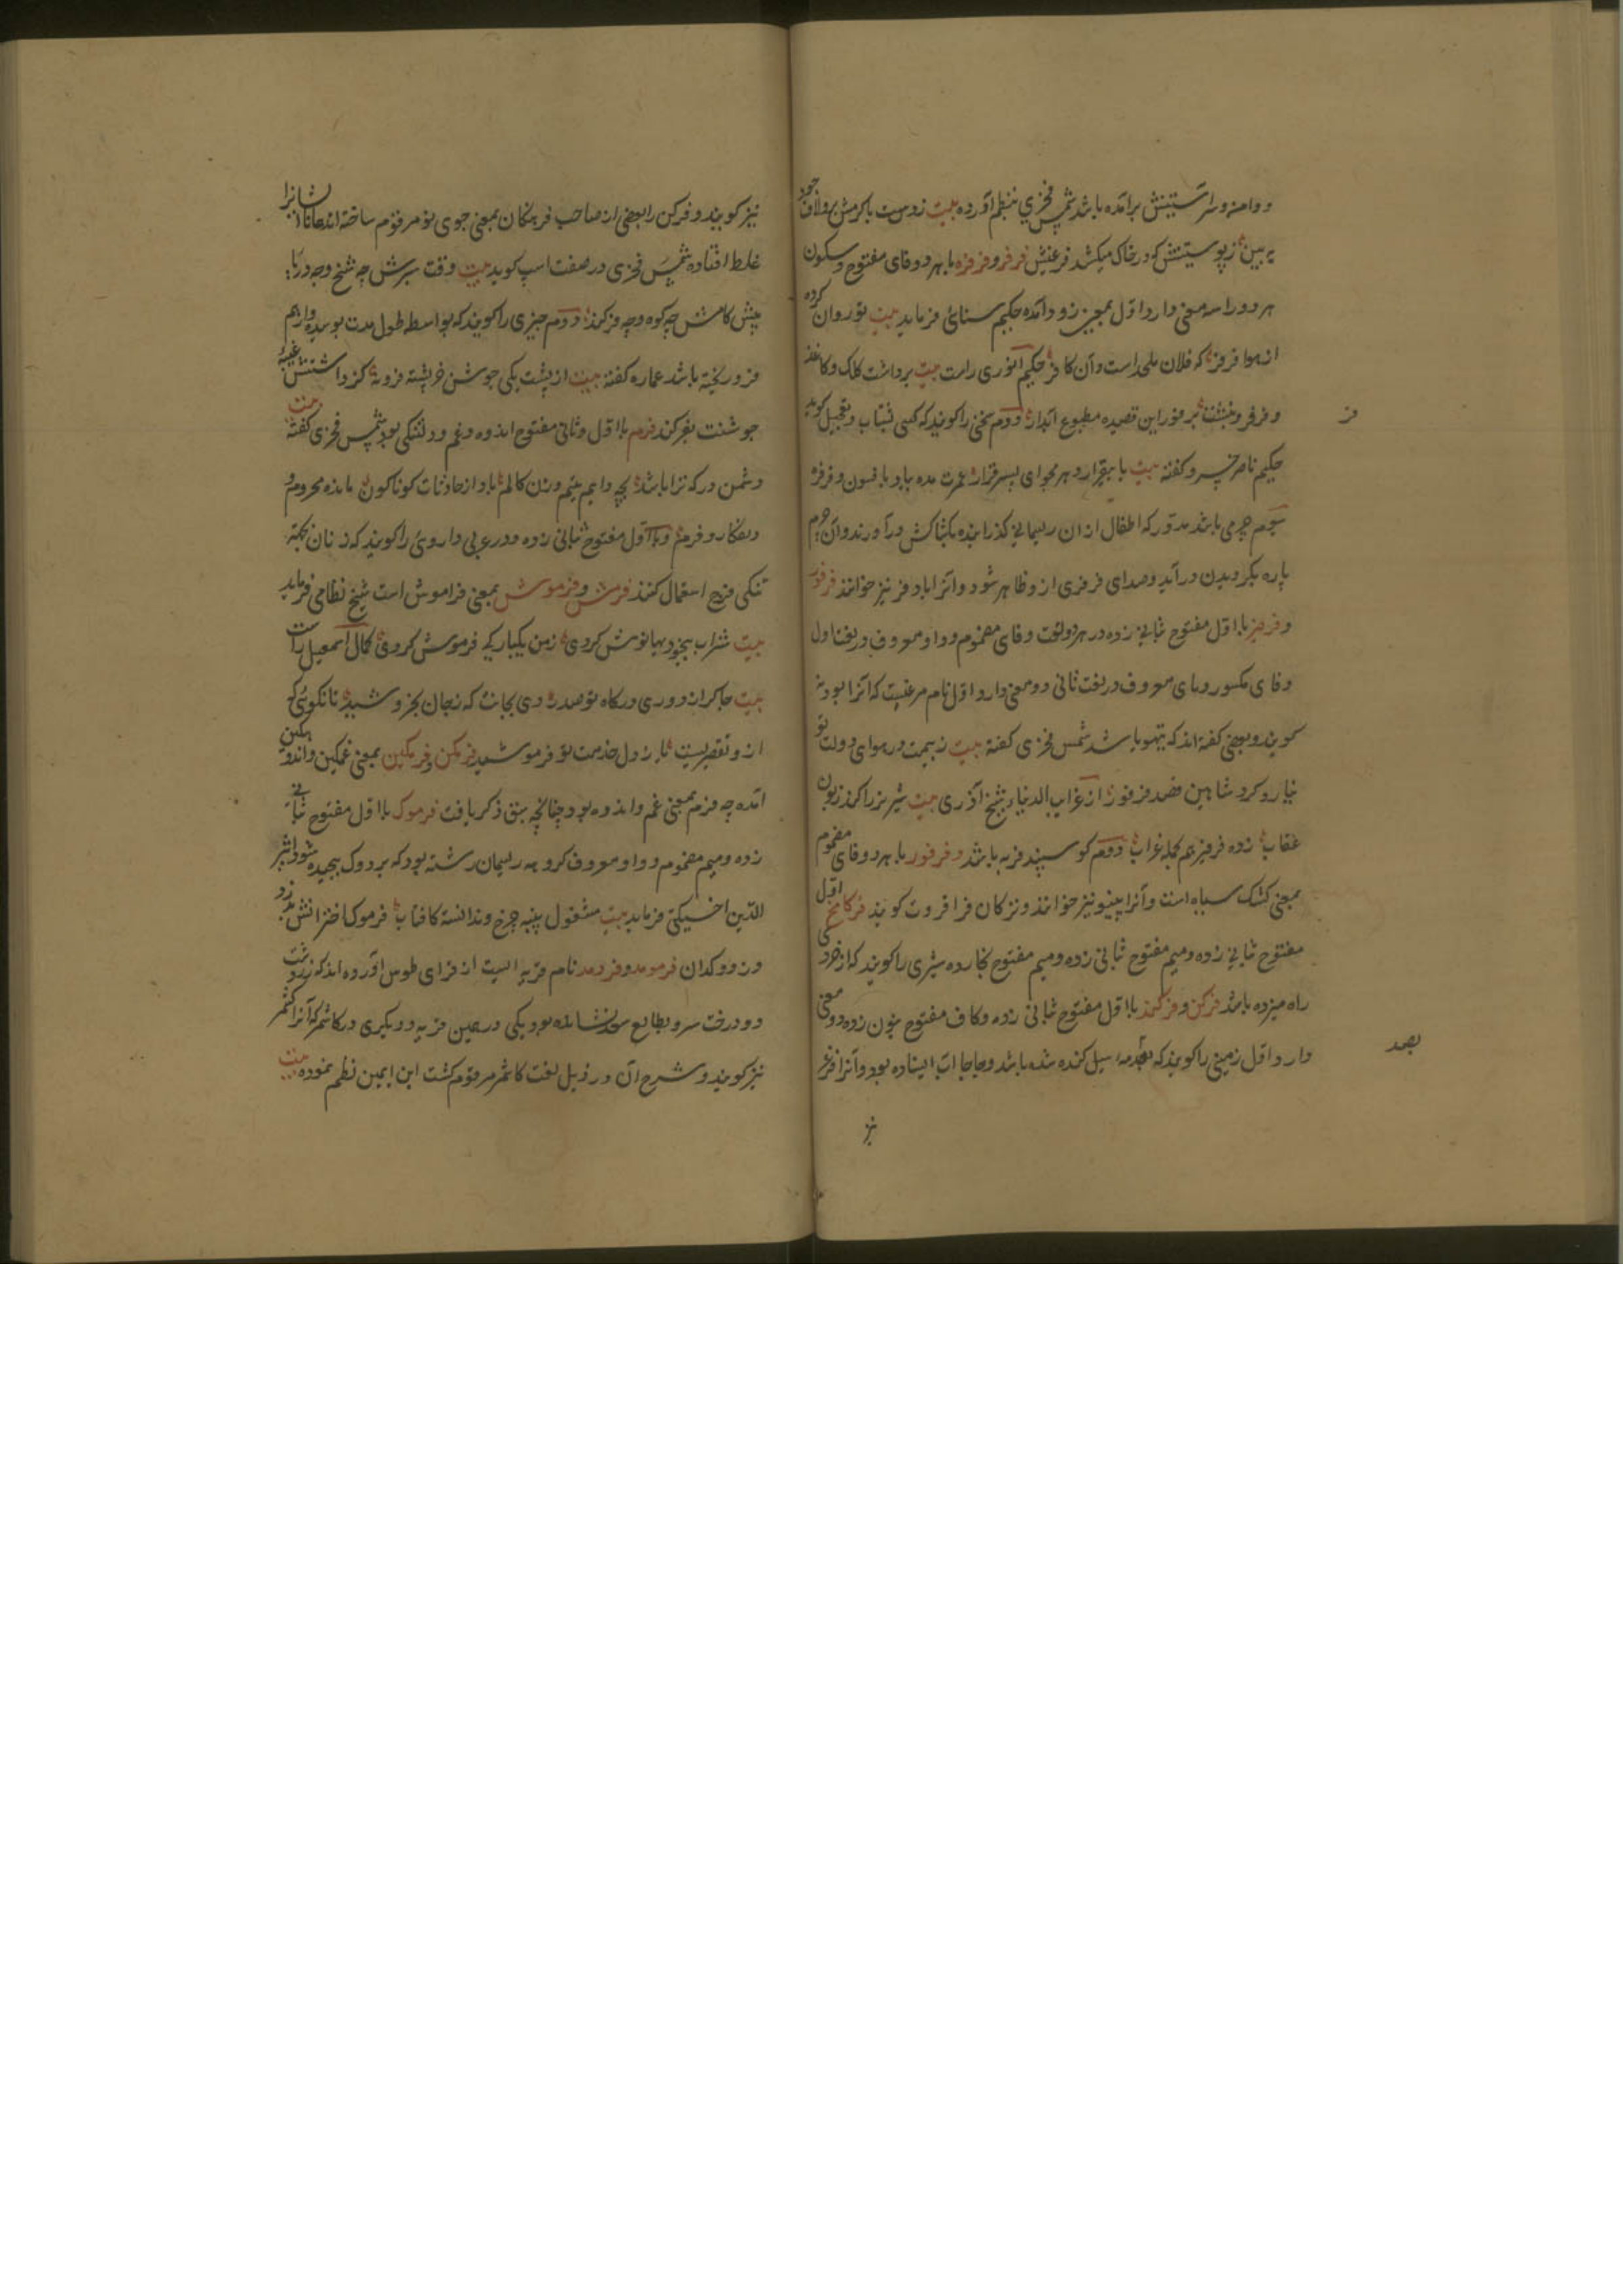 و دامنه و سر آستینش برآمده باشد شمس فخری بنظم آورده بیت زوست باکرمش لاف جود
به بین ز پوستینش که در خاک میکشد فرغیش فرفر و فرفره با هر دو فای مفتوح و سکون
هر دو را سه معنی دارد اول بمعنی زود آمده حکیم سنائی فرماید بیت تو روان کرده
از هوا فرفر که فلان ملحد است و آن کافر حکیم انوری راست بیت برداشت کلک و کاغذ
و فرفر و نبشت بر فور این قصیده مطبوع آبدار دوم سخنی را کویند که کسی بشتاب و تعجیل کوید
حکیم ناصر خسرو کفته بیت
سیوم چرمی باشد مدور که اطفال ازان ریسمانی کذرانیده بکشاکش درآورند و آن چرم
پاره بکردیدن درآید و صدای فرفری ازو ظاهر شود و آنرا بادفر نیز خوانند فرفور
و فرفیر با اول مفتوح بثانی زده در هر دو لغت و فای مضموم و واو معروف در لغت اول
و فای مکسور و یای معروف در لغت ثانی دو معنی دارد اول نام مرغیست که آنرا بودنه
کویند و بعضی کفته اند که تیهو باشد شمس فخری کفته بیت ز بیمت در هوای دولت تو
نیارد کرد شاهین قصد فرفور از غرایب الدنیا شیخ آذری بیت شیر نر را کرد زبون
عقاب زده فرفیرهم بکله غراب دوم کوسپند فربه باشد و فرفور با هر دو فای مضموم
بمعنی کشک سیاه است و آنرا پینو نیز خوانند و ترکان قرا قروت کویند فرکامخ اول
مفتوح بثانی زده و میم مفتوح
راه میزده باشد فرکن و فرکند با اول مفتوح بثانی زده و کاف مفتوح بنون زده دو معنی
دارد اول زمینی را کویند که بصدمه سیل کنده شده باشد و جابجا آب ایستاده بود و آنرا فرغر
ف
بصد
نیز
نیز کویند و فرکن را بعضی از صاحب فرهنکان بمعنی جوی نو مرقوم ساخته اند همانا ایشانرا
غلط افتاده شمس فخری در صفت اسپ کوید بیت وقت سیرش چه شخ و چه دریا
پیش کامش چه کوه و چه فرکند دوم چیزی را کویند که بواسطه طول مدت پوسیده و از هم
فرو ریخته باشد عماره کفته بیت از پشت یکی جوشن خرپشته فرو نه کز داشتنش غیبه
جوشنت بفرکند فرم با اول و ثانی مفتوح اندوه و غم و دلتنکی بود شمس فخری کفته بیت
دشمن در که ترا باشد بچه دایم یتیم و زن کالم باد از حادثات کوناکون مانده محروم و
دلفکار و فرم و با اول مفتوح بثانی زده در عربی داروئی را کویند که زنان بجهة
تنکی فرج استعمال کنند فرمش و فرموش بمعنی فراموش است شیخ نظامی فرماید
بیت شراب بیخودیها نوش کردی ز من یکبارکی فرموش کردی کمال اسمعیل راست
بیت چاکر از دوری درکاه تو صدره دی بجانت که ز جان بخروشید تا نکوئی که
از و تقصیریست یا ز دل خدمت تو فرموشید فرمکن و فرمکین بمعنی غمکین و اندوهکین
آمده چه فرم بمعنی غم و اندوه بود چنانچه سبق ذکر یافت فرموک با اول مفتوح بثانی
زده و میم مضموم و واو معروف کروهه ریسمان رشته بود که بر دوک پیچیده شود اثیر
الدین اخسیکتی فرماید بیت مشغول پنبه چرخ و ندانسته کافتاب فرموکها خزانش بدزد
ورز دوکدان فرمومد و فرومد نام قریه ایست از قرای طوس آورده اند که زردشت
دو درخت سرو بطالع سعد نشانده بود یکی در همین قریه و دیکری در کاشمر که آنرا کشمر
نیز کویند و شرح آن در ذیل لغت کاشمر مرقوم کشت ابن یمین نظم نموده بیت